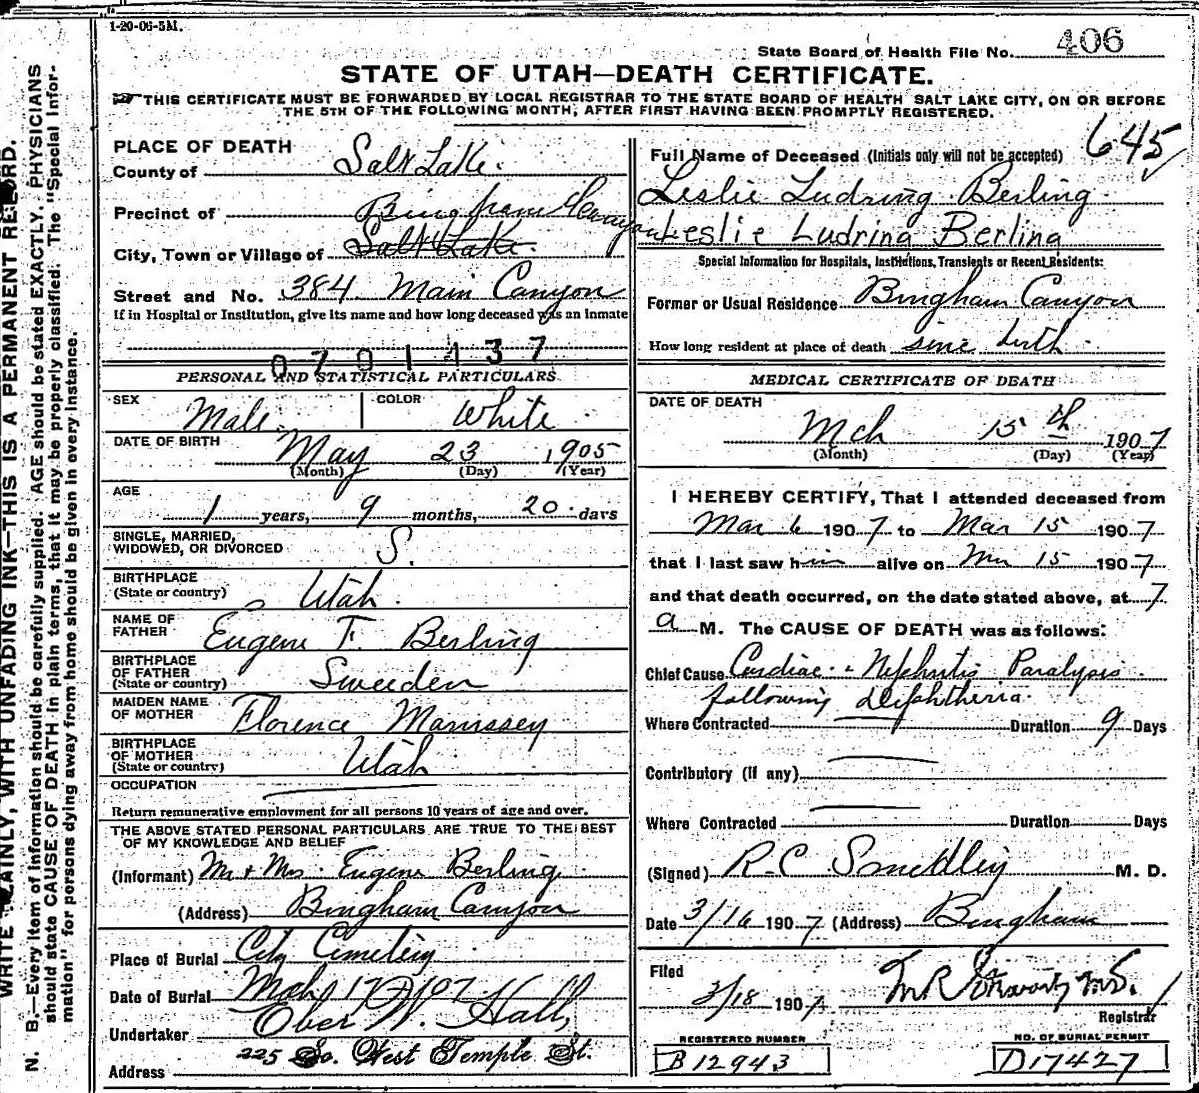 1-20-06-5M.
State Board of Health File No. 406
STATE OF UTAH—DEATH CERTIFICATE.
THIS CERTIFICATE MUST BE FORWARDED BY LOCAL REGISTRAR TO THE STATE BOARD OF HEALTH SALT LAKE CITY, ON OR BEFORE
THE 5TH OF THE FOLLOWING MONTH, AFTER FIRST HAVING BEEN PROMPTLY REGISTERED.
PLACE OF DEATH
County of Salt Lake.
Precinct of Bingham Canyon
City, Town or Village of Salt Lake.
Street and No. 384 Main Canyon
If in Hospital or Institution, give its name and how long deceased was an inmate
0701437
PERSONAL AND STATISTICAL PARTICULARS
SEX Male COLOR White
DATE OF BIRTH May 23 1905
(Month) (Day) (Year)
AGE
1 years, 9 months, 20 days
SINGLE, MARRIED,
WIDOWED, OR DIVORCED S.
BIRTHPLACE
(State or country) Utah.
NAME OF
FATHER Eugene F. Berling
BIRTHPLACE
OF FATHER
(State or country) Sweeden
MAIDEN NAME
OF MOTHER Florence
BIRTHPLACE
OF MOTHER
(State or country) Utah
OCCUPATION
Return remunerative employment for all persons 10 years of age and over.
THE ABOVE STATED PERSONAL PARTICULARS ARE TRUE TO THE BEST
OF MY KNOWLEDGE AND BELIEF
(Informant) Mr + Mrs. Eugene Berling
(Address) Bingham Canyon
Place of Burial City Cemetery
Date of Burial Mch 17 1907
Undertaker Ober W. Hall,
Address 225 So. West Temple St.
645
Full Name of Deceased (Initials only will not be accepted)
Leslie Ludring Berling
Leslie Ludring Berling
Special Information for Hospitals, Institutions, Transients or Recent Residents:
Former or Usual Residence Bingham Canyon
How long resident at place of death since birth
MEDICAL CERTIFICATE OF DEATH
DATE OF DEATH
Mch 15th 1907
(Month) (Day) (Year)
I HEREBY CERTIFY, That I attended deceased from
Mar 6 1907 to Mar 15 1907
that I last saw him alive on Mar 15 1907
and that death occurred, on the date stated above, at 7
a M. The CAUSE OF DEATH was as follows:
Chief Cause Cardiac - Nephritis Paralysis
following Diphtheria.
Where Contracted Duration 9 Days
Contributory (if any)
Where Contracted Duration Days
(Signed) R.C. Smedley M. D.
Date 3/16 1907 (Address) Bingham
Filed
3/18 1907
Registrar
REGISTERED NUMBER
B12943
NO. OF BURIAL PERMIT
D17427
WRITE PLAINLY, WITH UNFADING INK—THIS IS A PERMANENT RECORD.
N. B.—Every item of information should be carefully supplied. AGE should be stated EXACTLY. PHYSICIANS
should state CAUSE OF DEATH in plain terms, that it may be properly classified. The "Special Infor-
mation" for persons dying away from home should be given in every instance.